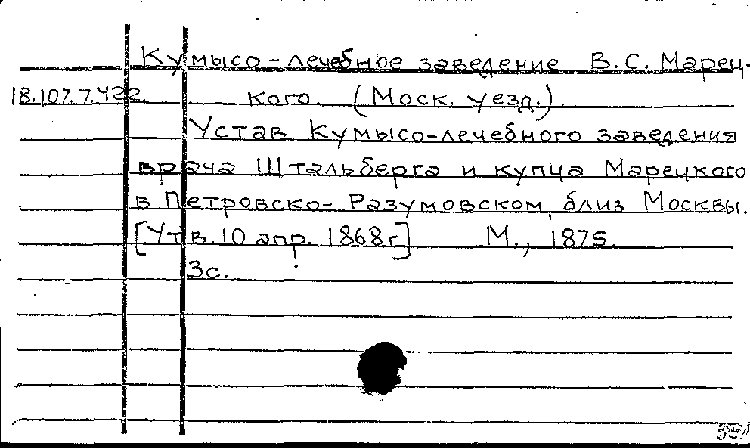 Кумысо-лечебное заведение В.С. Марец-
18.107.7.422 кого (Моск. уезд.)
Устав Кумысо-лечебного заведения
врача Штальберга и купца Марецкого
в Петровско-Разумовском, близ Москвы.
[Утв. 10 апр. 1868г.] М., 1875.
3с.